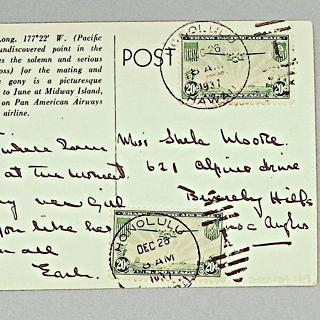 Long. 177°22' W. (Pacific
undiscovered point in the
es the solemn and serious
oss) for the mating and
e gony is a picturesque
to June at Midway Island,
on Pan American Airways
airline.
POST
HONOLULU
DEC 26
AM
1937
HAWAII
20¢
20¢
Miss Shela Moore
at the moment
621 Alpine drive
new Girl
Beverly Hills
you like her
Los Angles
all
Earl.
HONOLULU
DEC 26
AM
1937
20¢
20¢